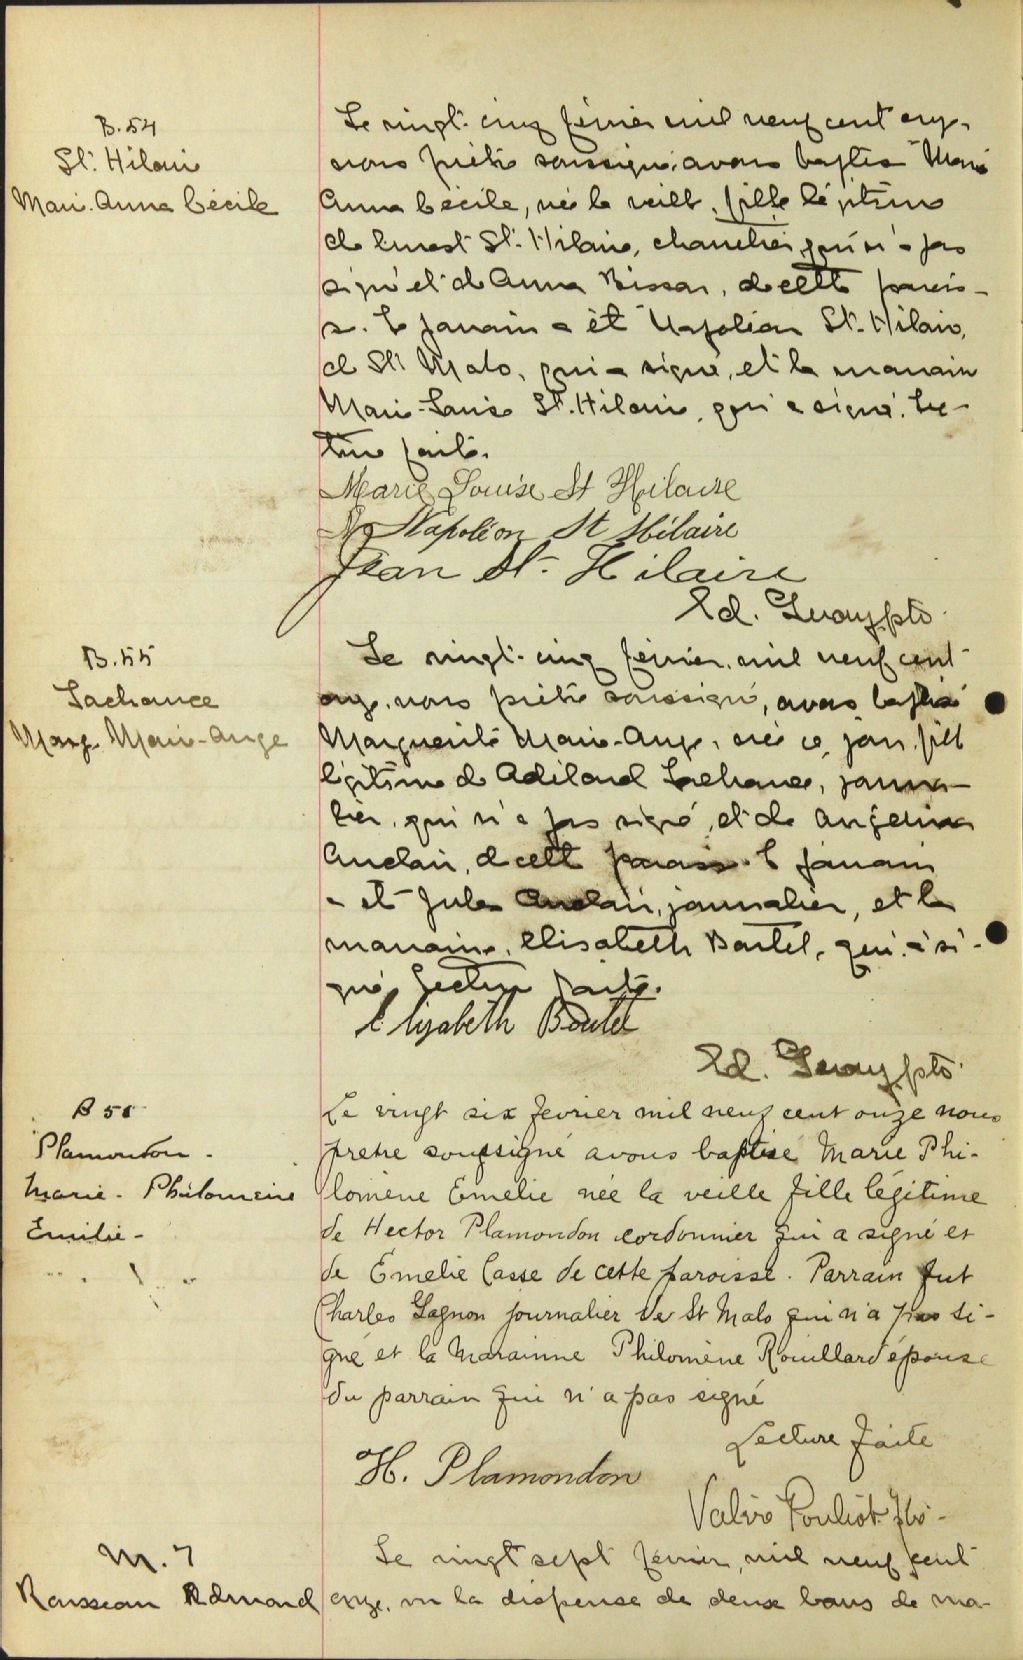 B. 54
St. Hilair
Marie. Anna Cécile
Le vingt-cinq février mil neuf cent onze,
nous prêtre soussigné, avons baptisé Marie
Anna Cécile, née la veille, fille légitime
de Ernest St. Hilaire, charretier, qui n'a pas
signé et de Anna Bisson, de cette parois-
se. Le parrain a été Napoléon St. Hilaire,
de St. Malo, qui a signé, et la marraine
Marie-Louise St. Hilaire, qui a signé. Lec-
ture faite.
Marie Louise St Hilaire
Napoléon St Hilaire
Jean St. Hilaire
Ed. Guay, ptr
B. 55
Lachance
Marg. Marie-Ange
Le vingt-cinq février, mil neuf cent
onze, nous prêtre soussigné, avons baptisé
Marguerite Marie-Ange, née ce jour, fille
légitime de Adélard Lachance, journa-
lier, qui n'a pas signé, et de Angélina
Auclair, de cette paroisse. Le parrain
a été Jules Auclair, journalier, et la
marraine, Elisabeth Boutet, qui a si-
gné. Lecture faite.
Elizabeth Boutet
Ed. Guay, ptr
B 56
Plamondon -
Marie - Philomène
Emilie -
Le vingt six fevrier mil neuf cent onze nous
pretre soussigné avons baptisé Marie Phi-
lomène Emelie née la veille fille légitime
de Hector Plamondon cordonnier qui a signé et
de Emelie Casse de cette paroisse. Parrain fut
Charles Gagnon journalier de St Malo qui n'a pas si-
gné et la Marainne Philomène Rouillard épouse
du parrain qui n'a pas signé
Lecture faite
H. Plamondon
Pouliot
M. 7
Rousseau Edmond
Le vingt sept février, mil neuf cent
onze, vu la dispense de deux bans de ma-